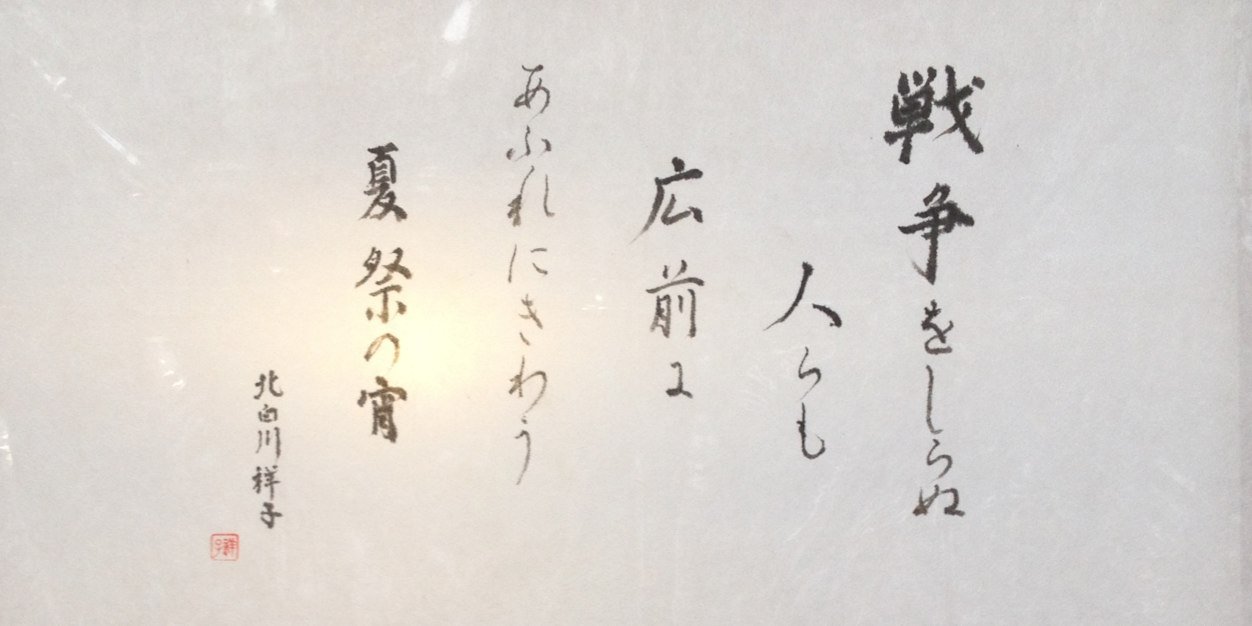 戦争をしらぬ
人らも
広前に
あふれにきわう
夏祭の宵
北白川祥子